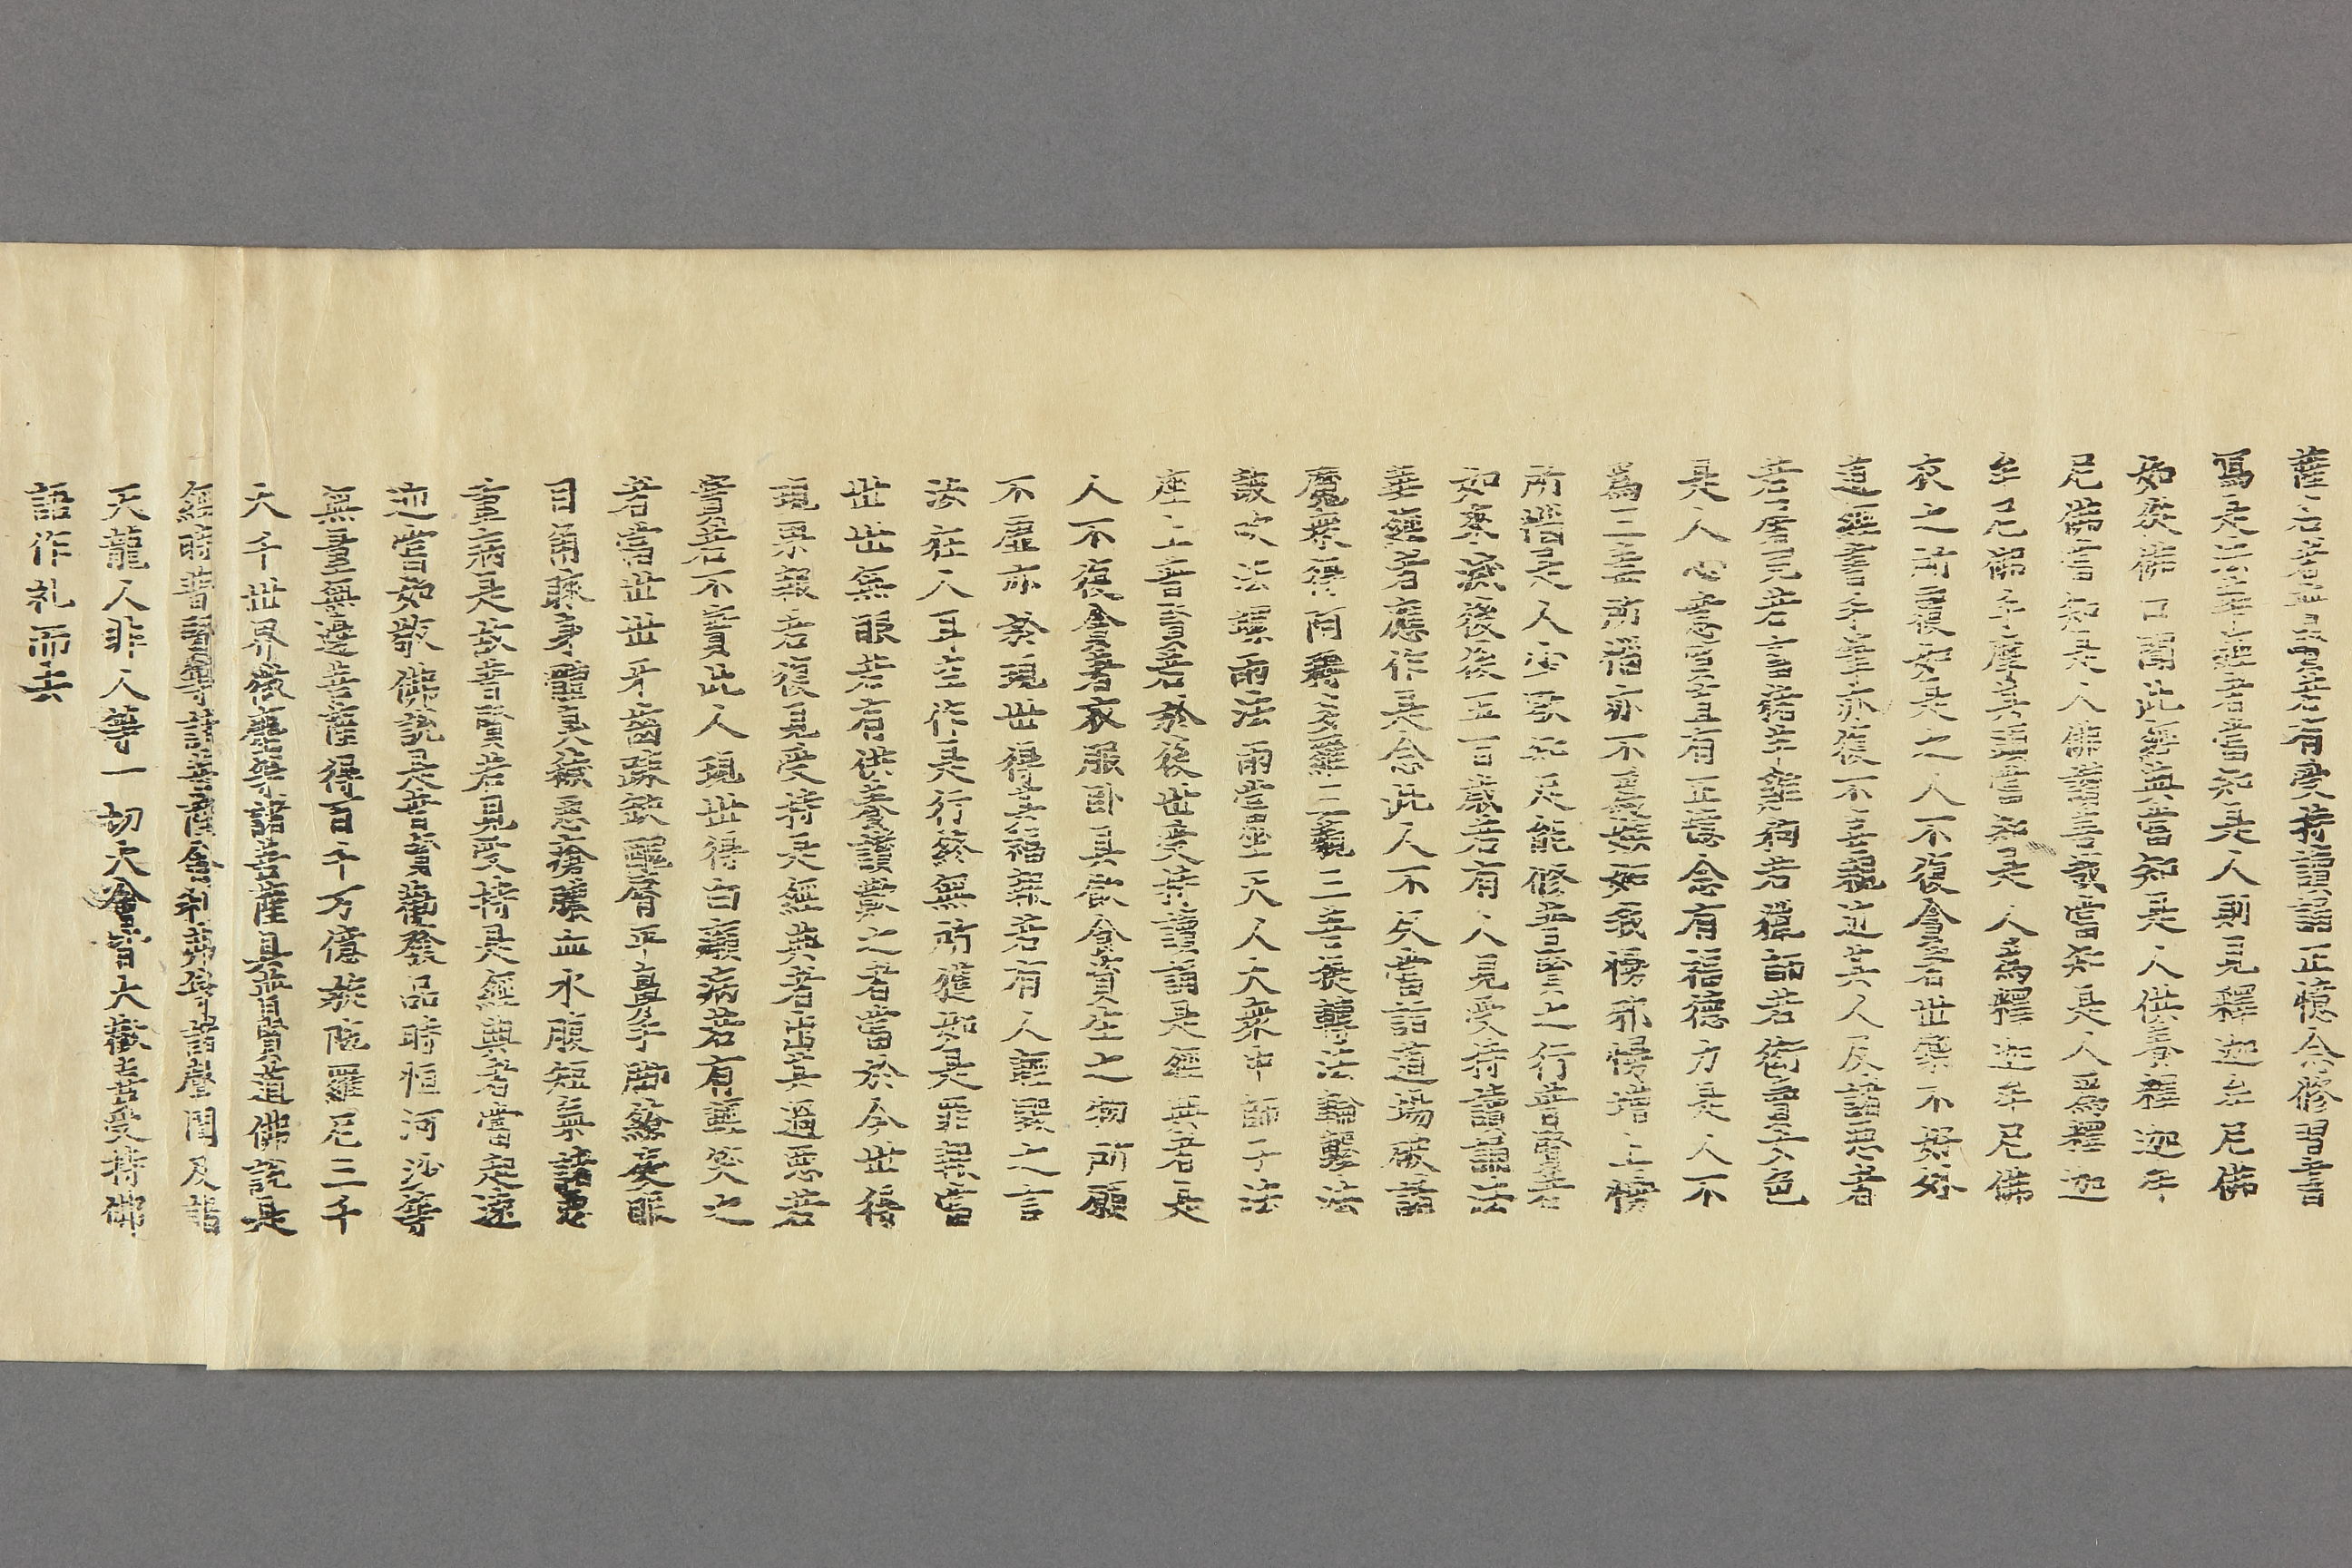 薩名者普賢若有受持讀誦正憶念修習書
寫是法華經者當知是人則見釋迦牟尼佛
如從佛口聞此經典當知是人供養釋迦牟
尼佛當知是人佛讚善哉當知是人爲釋迦
牟尼佛手摩其頭當知是人爲釋迦牟尼佛
衣之所覆如是之人不復貪著世樂不好外
道經書手筆亦復不喜親近其人及諸惡者
若屠兒若畜猪羊雞狗若獵師若衒賣女色
是人心意質直有正憶念有福德力是人不
爲三毒所惱亦不爲嫉妬我慢邪慢增上慢
所惱是人少欲知足能修普賢之行普賢若
如來滅後後五百歲若有人見受持讀誦法
華經者應作是念此人不久當詣道場破諸
魔衆得阿耨多羅三藐三菩提轉法輪擊法
鼓吹法螺雨法雨當坐天人大衆中師子法
座上普賢若於後世受持讀誦是經典者是
人不復貪著衣服卧具飲食資生之物所願
不虛亦於現世得其福報若有人輕毀之言
汝狂人耳空作是行終無所獲如是罪報當
世世無眼若有供養讚歎之者當於今世得
現果報若復見受持是經典者出其過惡若
實若不實此人現世得白癩病若有輕笑之
者當世世牙齒踈缺醜脣平鼻手脚繚戾眼
目角睞身體臭穢惡瘡膿血水腹短氣諸惡
重病是故普賢若見受持是經典者當起遠
迎當如敬佛說是普賢勸發品時恒河沙等
無量無邊菩薩得百千万億旋陁羅尼三千
大千世界微塵等諸菩薩具普賢道佛說是
經時普賢等諸菩薩舍利弗等諸聲聞及諸
天龍人非人等一切大會皆大歡喜受持佛
語作礼而去